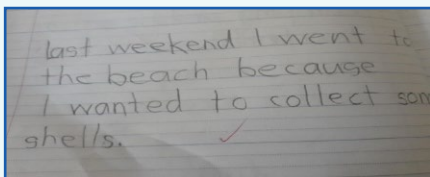 last weekend I went to
the beach because
I wanted to collect som
shells.